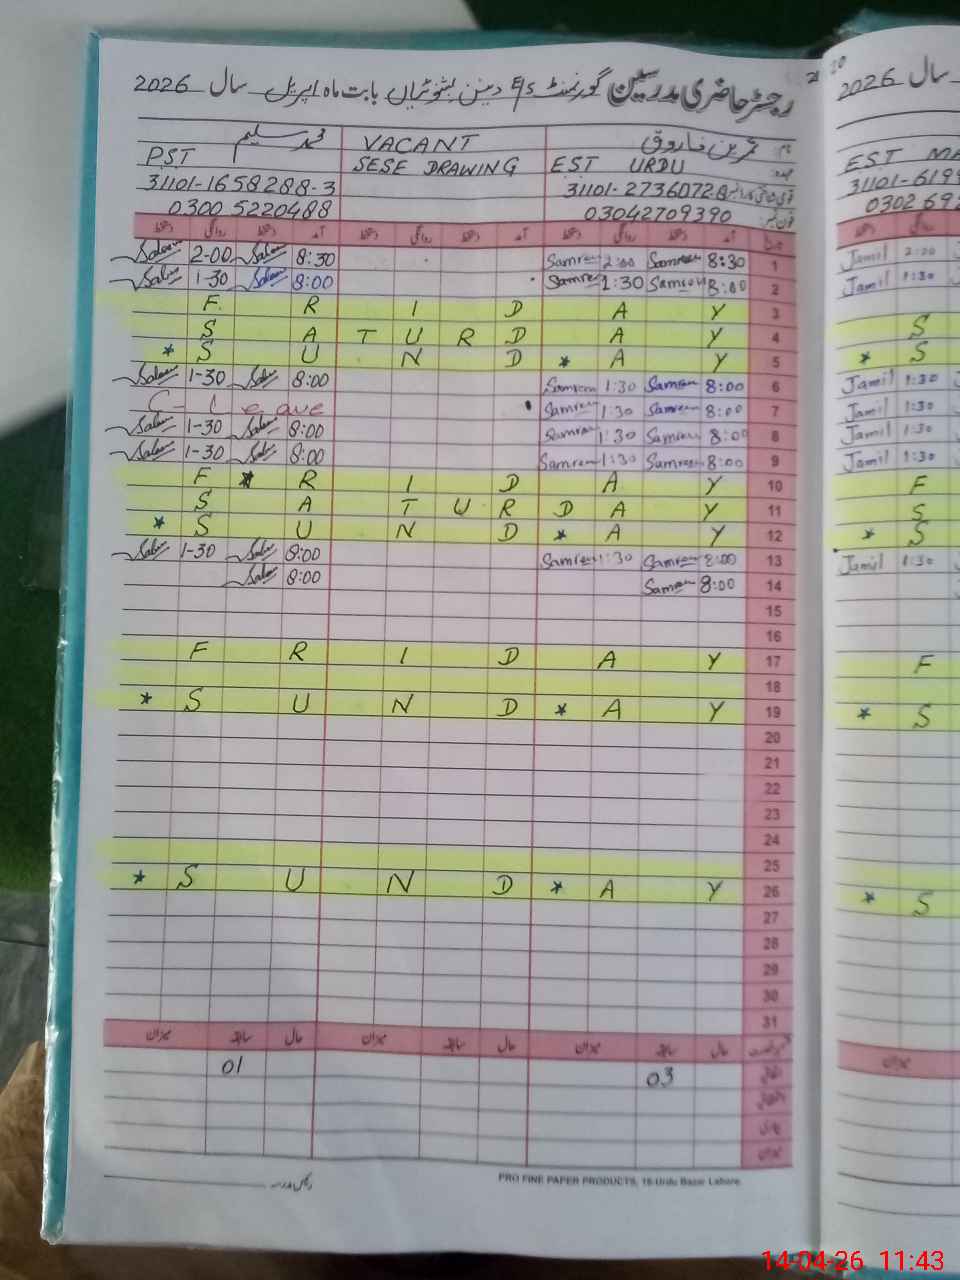 رجسٹر حاضری مدرسین گورنمنٹ E/s دینن بابت ماہ اپریل سال 2026
محمد سلیم VACANT ثمرین فاروق
PST SESE DRAWING EST URDU
31101-1658288-3 31101-2736072-8
0300 5220488 03042709390
دستخط روانگی دستخط آمد دستخط روانگی دستخط آمد دستخط روانگی دستخط آمد تاریخ
Saleem 2-00 Saleem 8:30 Samreen 2:00 Samreen 8:30 1
Saleem 1-30 Saleem 8:00 Samreen 1:30 Samreen 8:00 2
F R I D A Y 3
S A T U R D A Y 4
* S U N D * A Y 5
Saleem 1-30 Saleem 8:00 Samreen 1:30 Samreen 8:00 6
C - L e ave Samreen 1:30 Samreen 8:00 7
Saleem 1-30 Saleem 8:00 Samreen 1:30 Samreen 8:00 8
Saleem 1-30 Saleem 8:00 Samreen 1:30 Samreen 8:00 9
F * R I D A Y 10
S A T U R D A Y 11
* S U N D * A Y 12
Saleem 1-30 Saleem 8:00 Samreen 1:30 Samreen 8:00 13
Saleem 8:00 Samreen 8:00 14
15
16
F R I D A Y 17
18
* S U N D * A Y 19
20
21
22
23
24
25
* S U N D * A Y 26
27
28
29
30
31
میزان سابقہ حال میزان سابقہ حال میزان سابقہ حال
01 03 اتفاقی
میزان
PRO FINE PAPER PRODUCTS, 16-Urdu Bazar Lahore.
20
سال 2026
EST MA
31101-6199
0302 692
Jamil 2:00
Jamil 1:30
S
* S
Jamil 1:30
Jamil 1:30
Jamil 1:30
Jamil 1:30
F
S
* S
Jamil 1:30
F
* S
* S
میزان
14-04-26 11:43